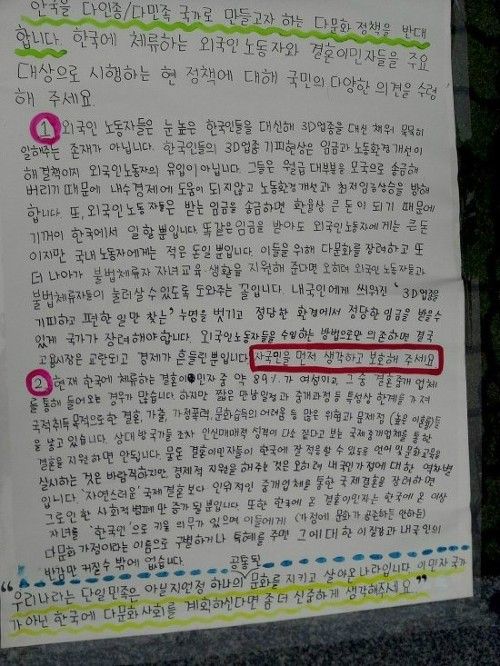 한국을 다인종/다민족 국가로 만들고자 하는 다문화 정책을 반대
합니다. 한국에 체류하는 외국인노동자와 결혼이민자들을 주요
대상으로 시행하는 현 정책에 대해 국민의 다양한 의견을 수렴
해 주세요
1 외국인 노동자들은 눈 높은 한국인들을 대신해 3D업종을 대신 채워 묵묵히
일해주는 존재가 아닙니다. 한국인들의 3D업종 기피현상은 임금과 노동환경개선이
해결책이지 외국인노동자의 유입이 아닙니다. 그들은 월급 대부분을 모국으로 송금해
버리기 때문에 내수경제에 도움이 되지않고 노동환경개선과 최저임금상승을 방해
합니다. 또, 외국인 노동자들은 받는 임금을 송금하면 환율상 큰 돈이 되기 때문에
기꺼이 한국에서 일할 뿐입니다. 똑같은 임금을 받아도 외국인노동자에게는 큰돈
이지만 국내 노동자에게는 적은 돈일 뿐입니다. 이들을 위해 다문화를 장려하고 또
더 나아가 불법체류자 자녀교육·생활을 지원해 준다면 오히려 외국인노동자들과
불법체류자들이 눌러살 수 있도록 도와주는 꼴입니다. 내국인에게 씌워진 '3D업종을
기피하고 편한 일만 찾는' 누명을 벗기고 정당한 환경에서 정당한 임금을 받을수
있게 국가가 장려해야합니다. 외국인노동자들을 수입하는 방법으로만 의존하면 결국
고용시장은 교란되고 경제가 흔들린 뿐입니다. 자국민을 먼저 생각하고 보호해 주세요
2 현재 한국에 체류하는 결혼이민자 중 약 89%가 여성이고, 그 중 결혼중개 업체
를 통해 들어오는 경우가 많습니다. 하지만 짧은 만남일정과 중개과정 등 특성상 한계를 가져
국적취득목적으로한 결혼, 가출, 가정폭력, 문화습득의 어려움 등 많은 위험과 문제점 (높은 이혼율)들
을 낳고 있습니다. 상대방국가들 조차 인신매매적 성격이 다소 짙다고 보는 국제중개업체를 통한
결혼을 지원하면 안됩니다. 물론 결혼이민자들이 한국에 잘 적응할 수 있도록 언어 및 문화교육을
실시하는 것은 바람직하지만 경제적 지원을 해주는 것은 오히려 내국인가정에 대한 역차별
입니다. '자연스러운' 국제결혼보다 인위적인 중개업체를 통한 국제결혼을 장려하면
그로인한 사회적병폐만 증가될 뿐입니다. 또한 한국에 온 결혼이민자는 한국에 온 이상
자녀를 '한국인'으로 키울 의무가 있으며 이들에게 (가정에 문화가 공존하든 안하든)
다문화가정이라는 이름으로 구별하거나 특혜를 주면 그에 대한 이질감과 내국인의
반감만 커질수 밖에 없습니다.
공통된
"우리나라는 단일민족은 아닐지언정 하나의 문화를 지키고 살아온나라입니다. 이민자 국가
가 아닌 한국에 다문화사회를 계획하신다면 좀 더 신중하게 생각해주세요."